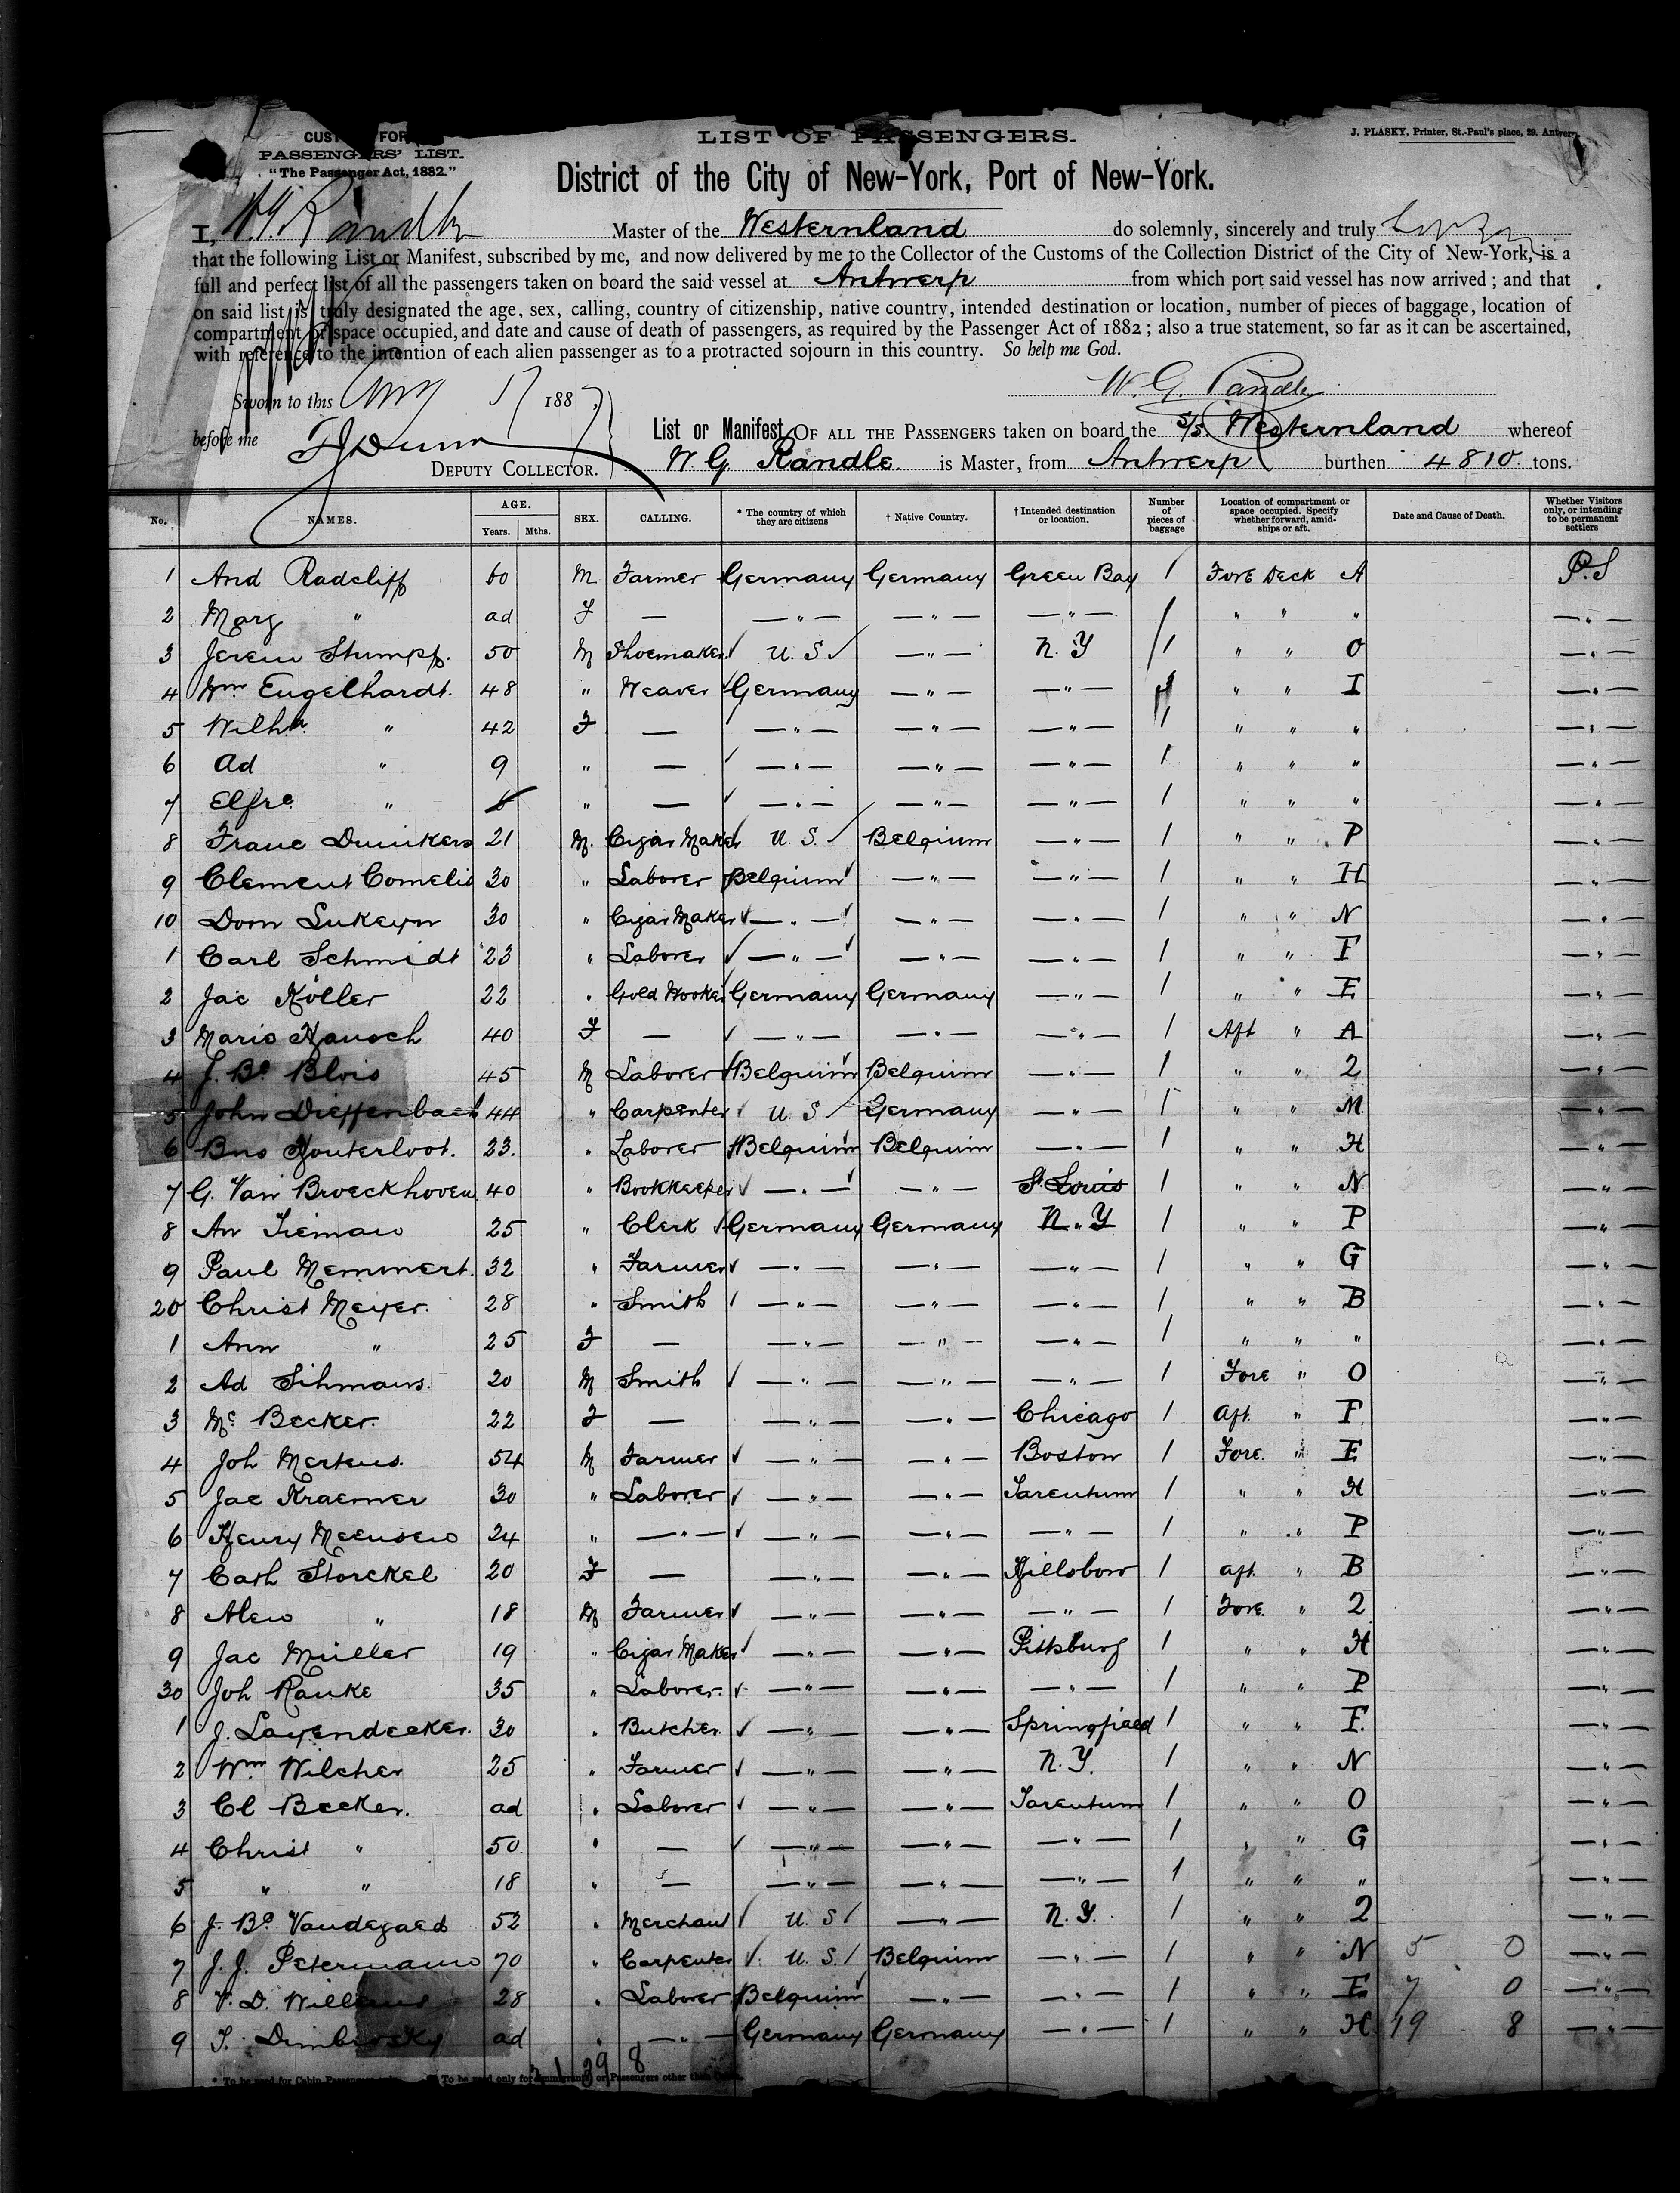 LIST OF PASSENGERS.
J. PLASKY, Printer, St.-Paul's place, 29. Antwerp.
PASSENGERS' LIST.
"The Passenger Act, 1882."
District of the City of New-York, Port of New-York.
I, W. G. Randle Master of the Westernland do solemnly, sincerely and truly
that the following List or Manifest, subscribed by me, and now delivered by me to the Collector of the Customs of the Collection District of the City of New-York, is a
full and perfect list of all the passengers taken on board the said vessel at Antwerp from which port said vessel has now arrived; and that
on said list is truly designated the age, sex, calling, country of citizenship, native country, intended destination or location, number of pieces of baggage, location of
compartment or space occupied, and date and cause of death of passengers, as required by the Passenger Act of 1882; also a true statement, so far as it can be ascertained,
with reference to the intention of each alien passenger as to a protracted sojourn in this country. So help me God.
W. G. Randle
Sworn to this 188
before me
DEPUTY COLLECTOR.
List or Manifest OF ALL THE PASSENGERS taken on board the S/S. Westernland whereof
W. G. Randle. is Master, from Antwerp burthen 4810. tons.
No. NAMES. AGE. Years. Mths. SEX. CALLING. * The country of which they are citizens † Native Country. † Intended destination or location. Number of pieces of baggage Location of compartment or space occupied. Specify whether forward, amidships or aft. Date and Cause of Death. Whether Visitors only, or intending to be permanent settlers
1 And Radcliff 60 M Farmer Germany Germany Green Bay 1 Fore Deck A P.S
2 Marg " ad F — — " — — " — — " — " " " — " —
3 Jerem Stumpf. 50 M Shoemaker U. S — " — N. Y 1 " " O — " —
4 Wm Engelhardt. 48 " Weaver Germany — " — — " — " " I — " —
5 Wilha " 42 F — — " — — " — — " — 1 " " " — " —
6 Ad " 9 " — — " — — " — — " — 1 " " " — " —
7 Elfre " 6 " — — " — — " — — " — 1 " " " — " —
8 Franc Duinkers 21 M. Cigar Maker U. S. Belgium — " — 1 " " P — " —
9 Clement Cornelis 30 " Laborer Belgium — " — — " — 1 " " H — " —
10 Dom Lukeyn 30 " Cigar Maker — " — — " — — " — 1 " " N — " —
1 Carl Schmidt 23 " Laborer — " — — " — — " — 1 " " F — " —
2 Jac Köller 22 " Gold Worker Germany Germany — " — 1 " " E — " —
3 Marie Hausch 40 F — — " — — " — — " — 1 Aft " A — " —
4 J. Bte Blois 45 M Laborer Belguim Belguim — " — 1 " " 2 — " —
5 John Dieffenbach 44 " Carpenter U. S Germany — " — 1 " " M — " —
6 Bno Houterloot. 23. " Laborer Belguim Belguim — " — 1 " " H — " —
7 G. Van Broeckhoven 40 " Bookkeeper — " — — " — St. Louis 1 " " N — " —
8 An Tiemaw 25 " Clerk Germany Germany N. Y 1 " " P — " —
9 Paul Memmert. 32 " Farmer — " — — " — — " — 1 " " G — " —
20 Christ Meyer. 28 " Smith — " — — " — — " — 1 " " B — " —
1 Ann " 25 F — — " — — " — — " — 1 " " " — " —
2 Ad Sihmans. 20 M Smith — " — — " — — " — 1 Fore " O — " —
3 Mc Becker. 22 F — — " — — " — Chicago 1 Aft. " F. — " —
4 Joh Mertens. 54 M Farmer — " — — " — Boston 1 Fore. " E — " —
5 Jac Kraemer 30 " Laborer — " — — " — Tarentum 1 " " H — " —
6 Henry Meensen 24 " — " — — " — — " — — " — 1 " " P — " —
7 Cath Storckel 20 F — — " — — " — Hillsboro 1 aft. " B — " —
8 " 18 M Farmer — " — — " — — " — 1 Fore. " 2 — " —
9 Jac Müller 19 " Cigar Maker — " — — " — Pittsburg 1 " " H — " —
30 Joh Ranke 35 " Laborer. — " — — " — — " — 1 " " P — " —
1 J. Layendecker. 30 " Butcher. — " — — " — Springfield 1 " " F. — " —
2 Wm Wilcher 25 " Farmer — " — — " — N. Y. 1 " " N — " —
3 Cl Becker. ad " Laborer — " — — " — Tarentum 1 " " O — " —
4 Christ " 50 " — — " — — " — — " — 1 " " G — " —
5 " " 18 " — — " — — " — — " — 1 " " " — " —
6 J. Bte Vandegaed 52 " Merchant U. S — " — N. Y. 1 " " 2 — " —
7 J. J. Petermann 70 " Carpenter U. S. Belguim — " — 1 " " N 5 0 — " —
8 V. D. Willems 28 " Laborer Belguim — " — — " — 1 " " E 7 0 — " —
9 T. Dimbrosky ad " — " — Germany Germany — " — 1 " " H 19 8 — " —
39 8